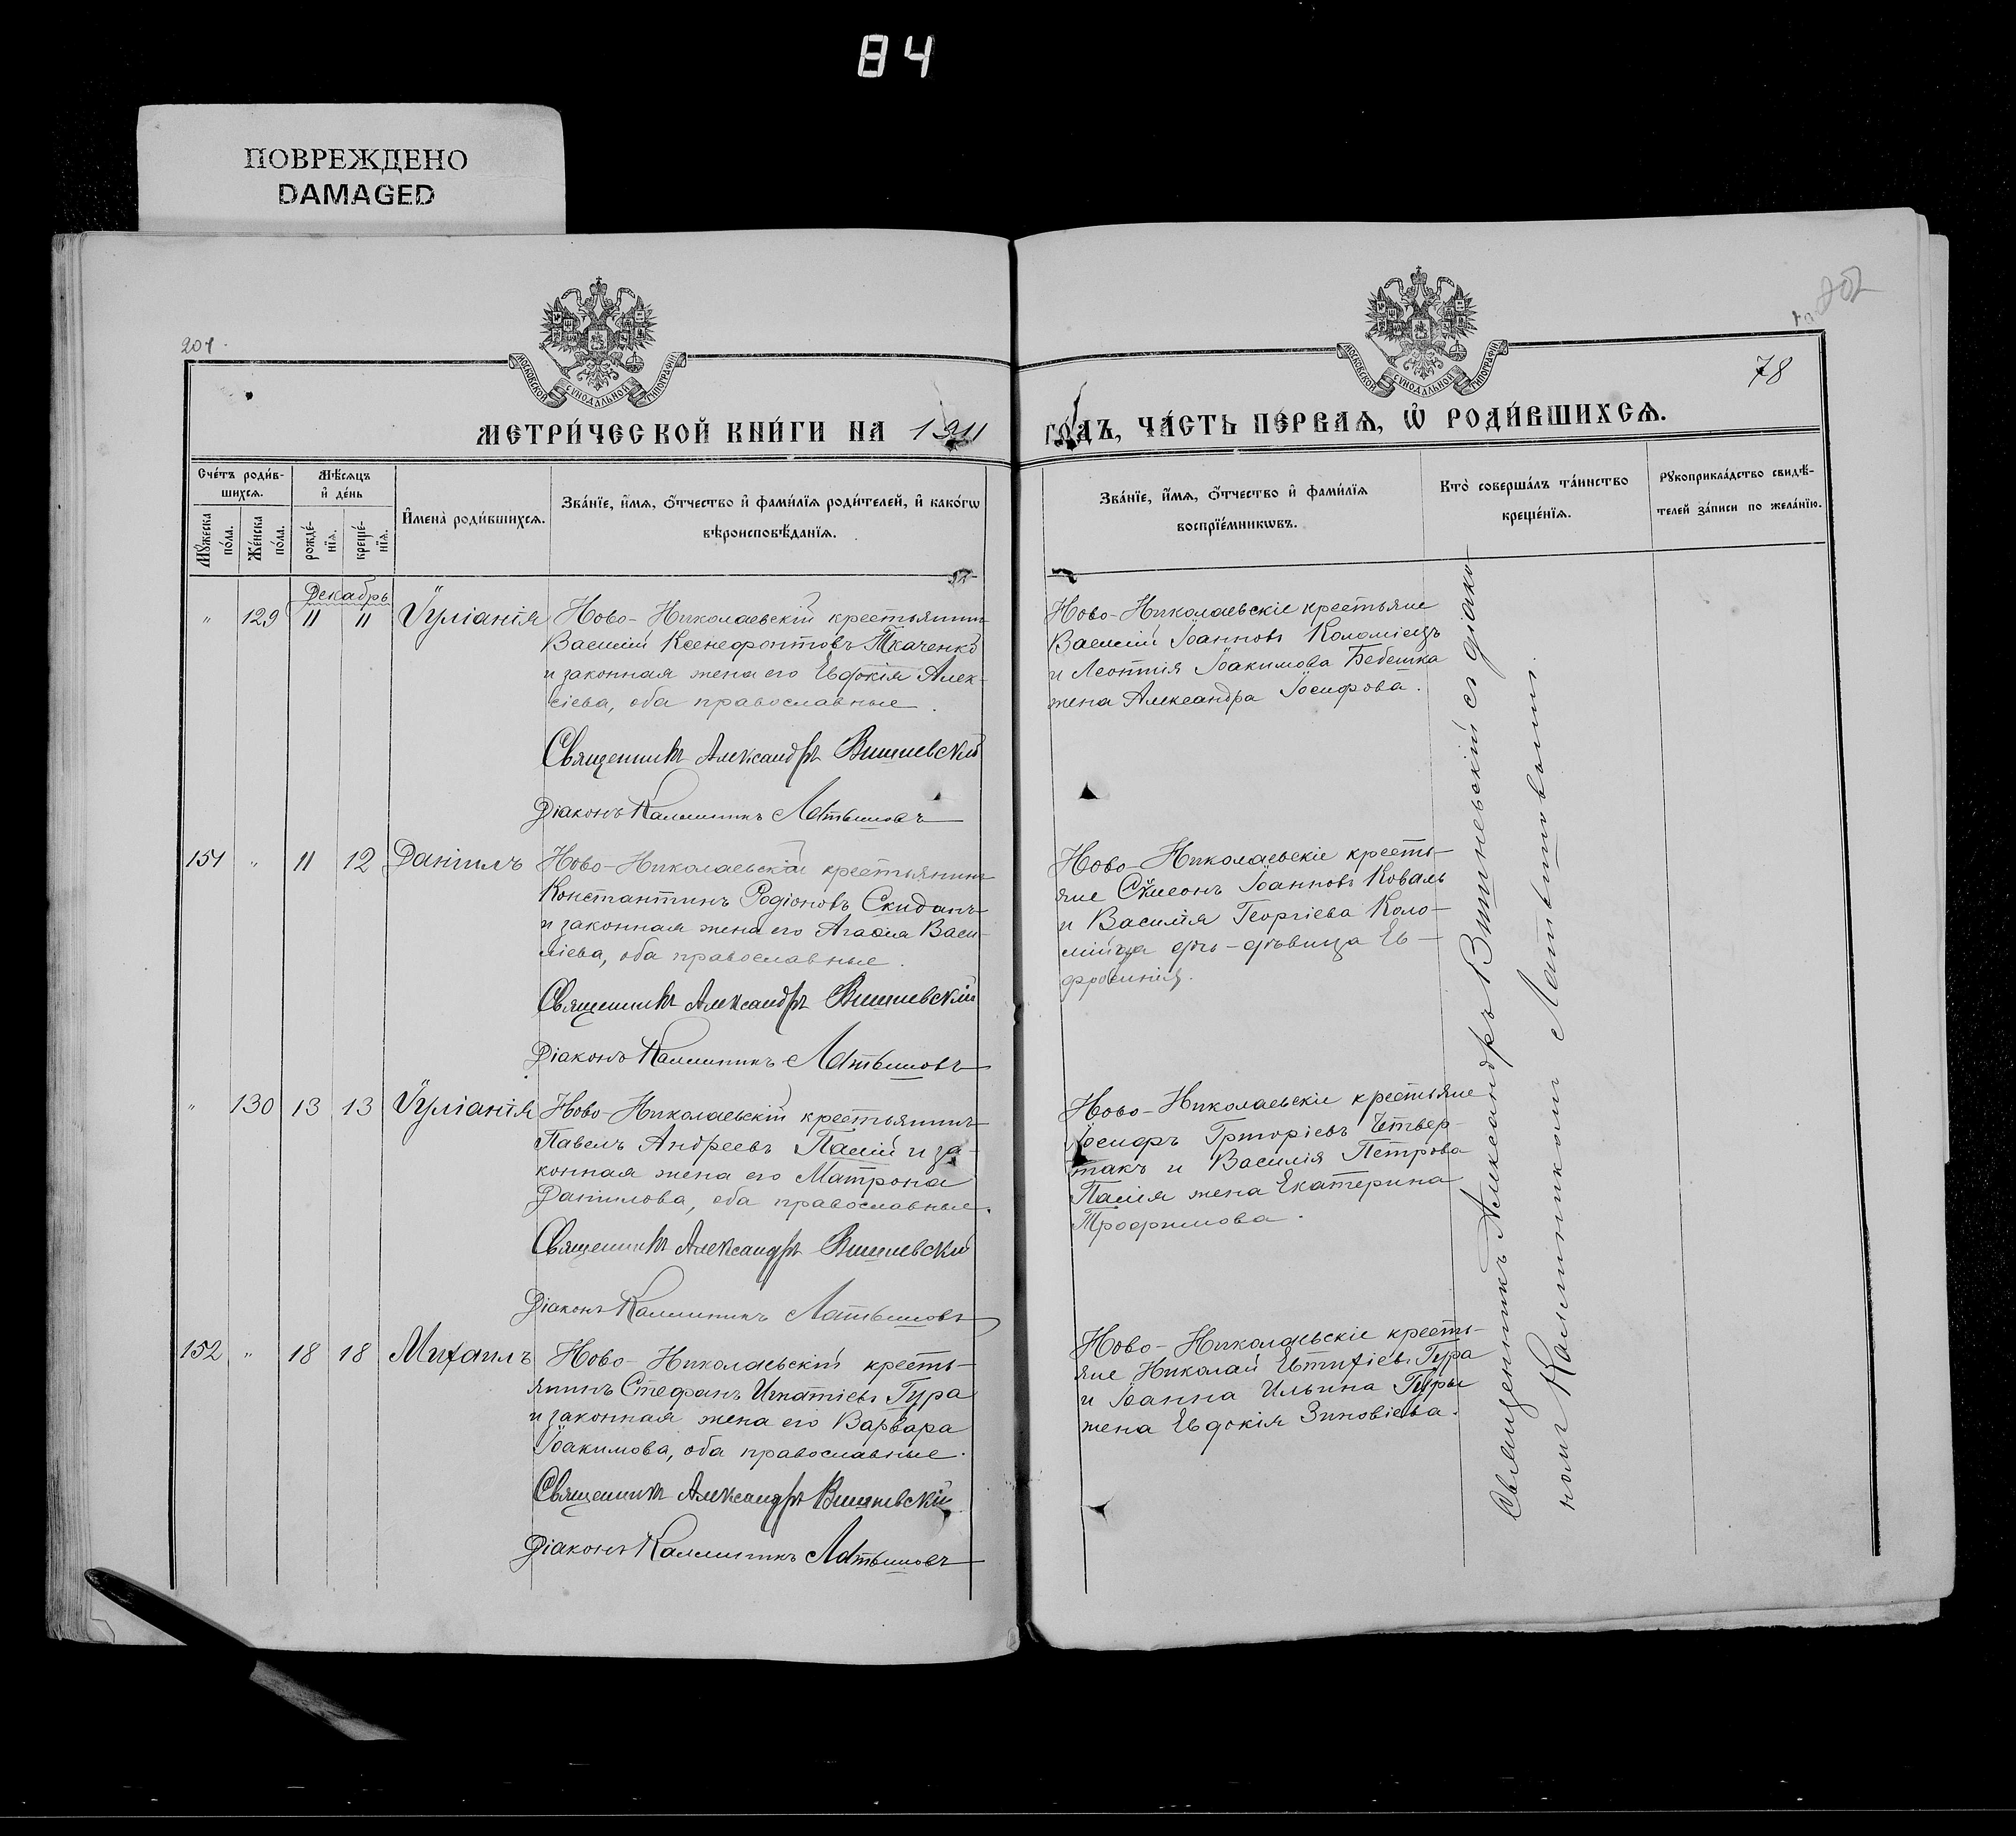 84
ПОВРЕЖДЕНО
DAMAGED
201.
78
МОСКОВСКОЙ СѴНОДАЛЬНОЙ ТИПОГРАФІИ
МОСКОВСКОЙ СѴНОДАЛЬНОЙ ТИПОГРАФІИ
МЕТРИ́ЧЕСКОЙ КНИ́ГИ НА 1911 ГО́ДЪ, ЧА́СТЬ ПЕ́РВАѦ, Ѡ҆ РОДИ́ВШИХСѦ.
Сче́тъ роди́в-
шихсѧ.
Мѣ́сѧцъ
и҆ де́нь
Мꙋ́жеска
по́ла.
Же́нска
по́ла.
рожде́-
нїѧ.
креще́-
нїѧ.
И҆мена̀ роди́вшихсѧ.
Зва́нїе, и҆́мѧ, о҆́тчество и҆ фами́лїѧ роди́телей, и҆ како́гѡ
вѣроисповѣ́данїѧ.
Зва́нїе, и҆́мѧ, о҆́тчество и҆ фами́лїѧ
воспрїе́мникѡвъ.
Кто̀ соверша́лъ та́инство
креще́нїѧ.
Рꙋкоприкла́дство свидѣ́-
телей за́писи по жела́нїю.
Декабрь
" 129 11 11 Іуліанія
Ново-Николаевскій крестьянинъ
Василій Ксенофонтовъ Ткаченко
и законная жена его Евдокія Алек-
сіева, оба православные.
Священникъ Александръ Вишневскій
Діаконъ Каллиникъ Латвиновъ
Ново-Николаевскіе крестьяне
Василій Іоанновъ Коломіецъ
и Леонтія Іоакимова Бебешка
жена Александра Іосифова.
151 " 11 12 Даніилъ
Ново-Николаевскій крестьянинъ
Константинъ Родіоновъ Скиданъ
и законная жена его Агаѳія Васи-
ліева, оба православные.
Священникъ Александръ Вишневскій
Діаконъ Каллиникъ Латвиновъ
Ново-Николаевскіе кресть-
яне Симеонъ Іоанновъ Коваль
и Василія Георгіева Коло-
мійца дочь-дѣвица Ев-
фросинія.
" 130 13 13 Іуліанія
Ново-Николаевскій крестьянинъ
Павелъ Андреевъ Палій и за-
конная жена его Матрона
Даніилова, оба православные.
Священникъ Александръ Вишневскій
Діаконъ Каллиникъ Латвиновъ
Ново-Николаевскіе крестьяне
Іосифъ Григоріевъ Четвер-
такъ и Василія Петрова
Палія жена Екатерина
Трофимова.
152 " 18 18 Михаилъ
Ново-Николаевскій кресть-
янинъ Стефанъ Игнатіевъ Гура
и законная жена его Варвара
Іоакимова, оба православные.
Священникъ Александръ Вишневскій
Діаконъ Каллиникъ Латвиновъ
Ново-Николаевскіе кресть-
яне Николай Евтихіевъ Гура
и Іоанна Ильина Гуры
жена Евдокія Зиновіева.
Священникъ Александръ Вишневскій съ діако-
номъ Каллиникомъ Латвиновымъ.